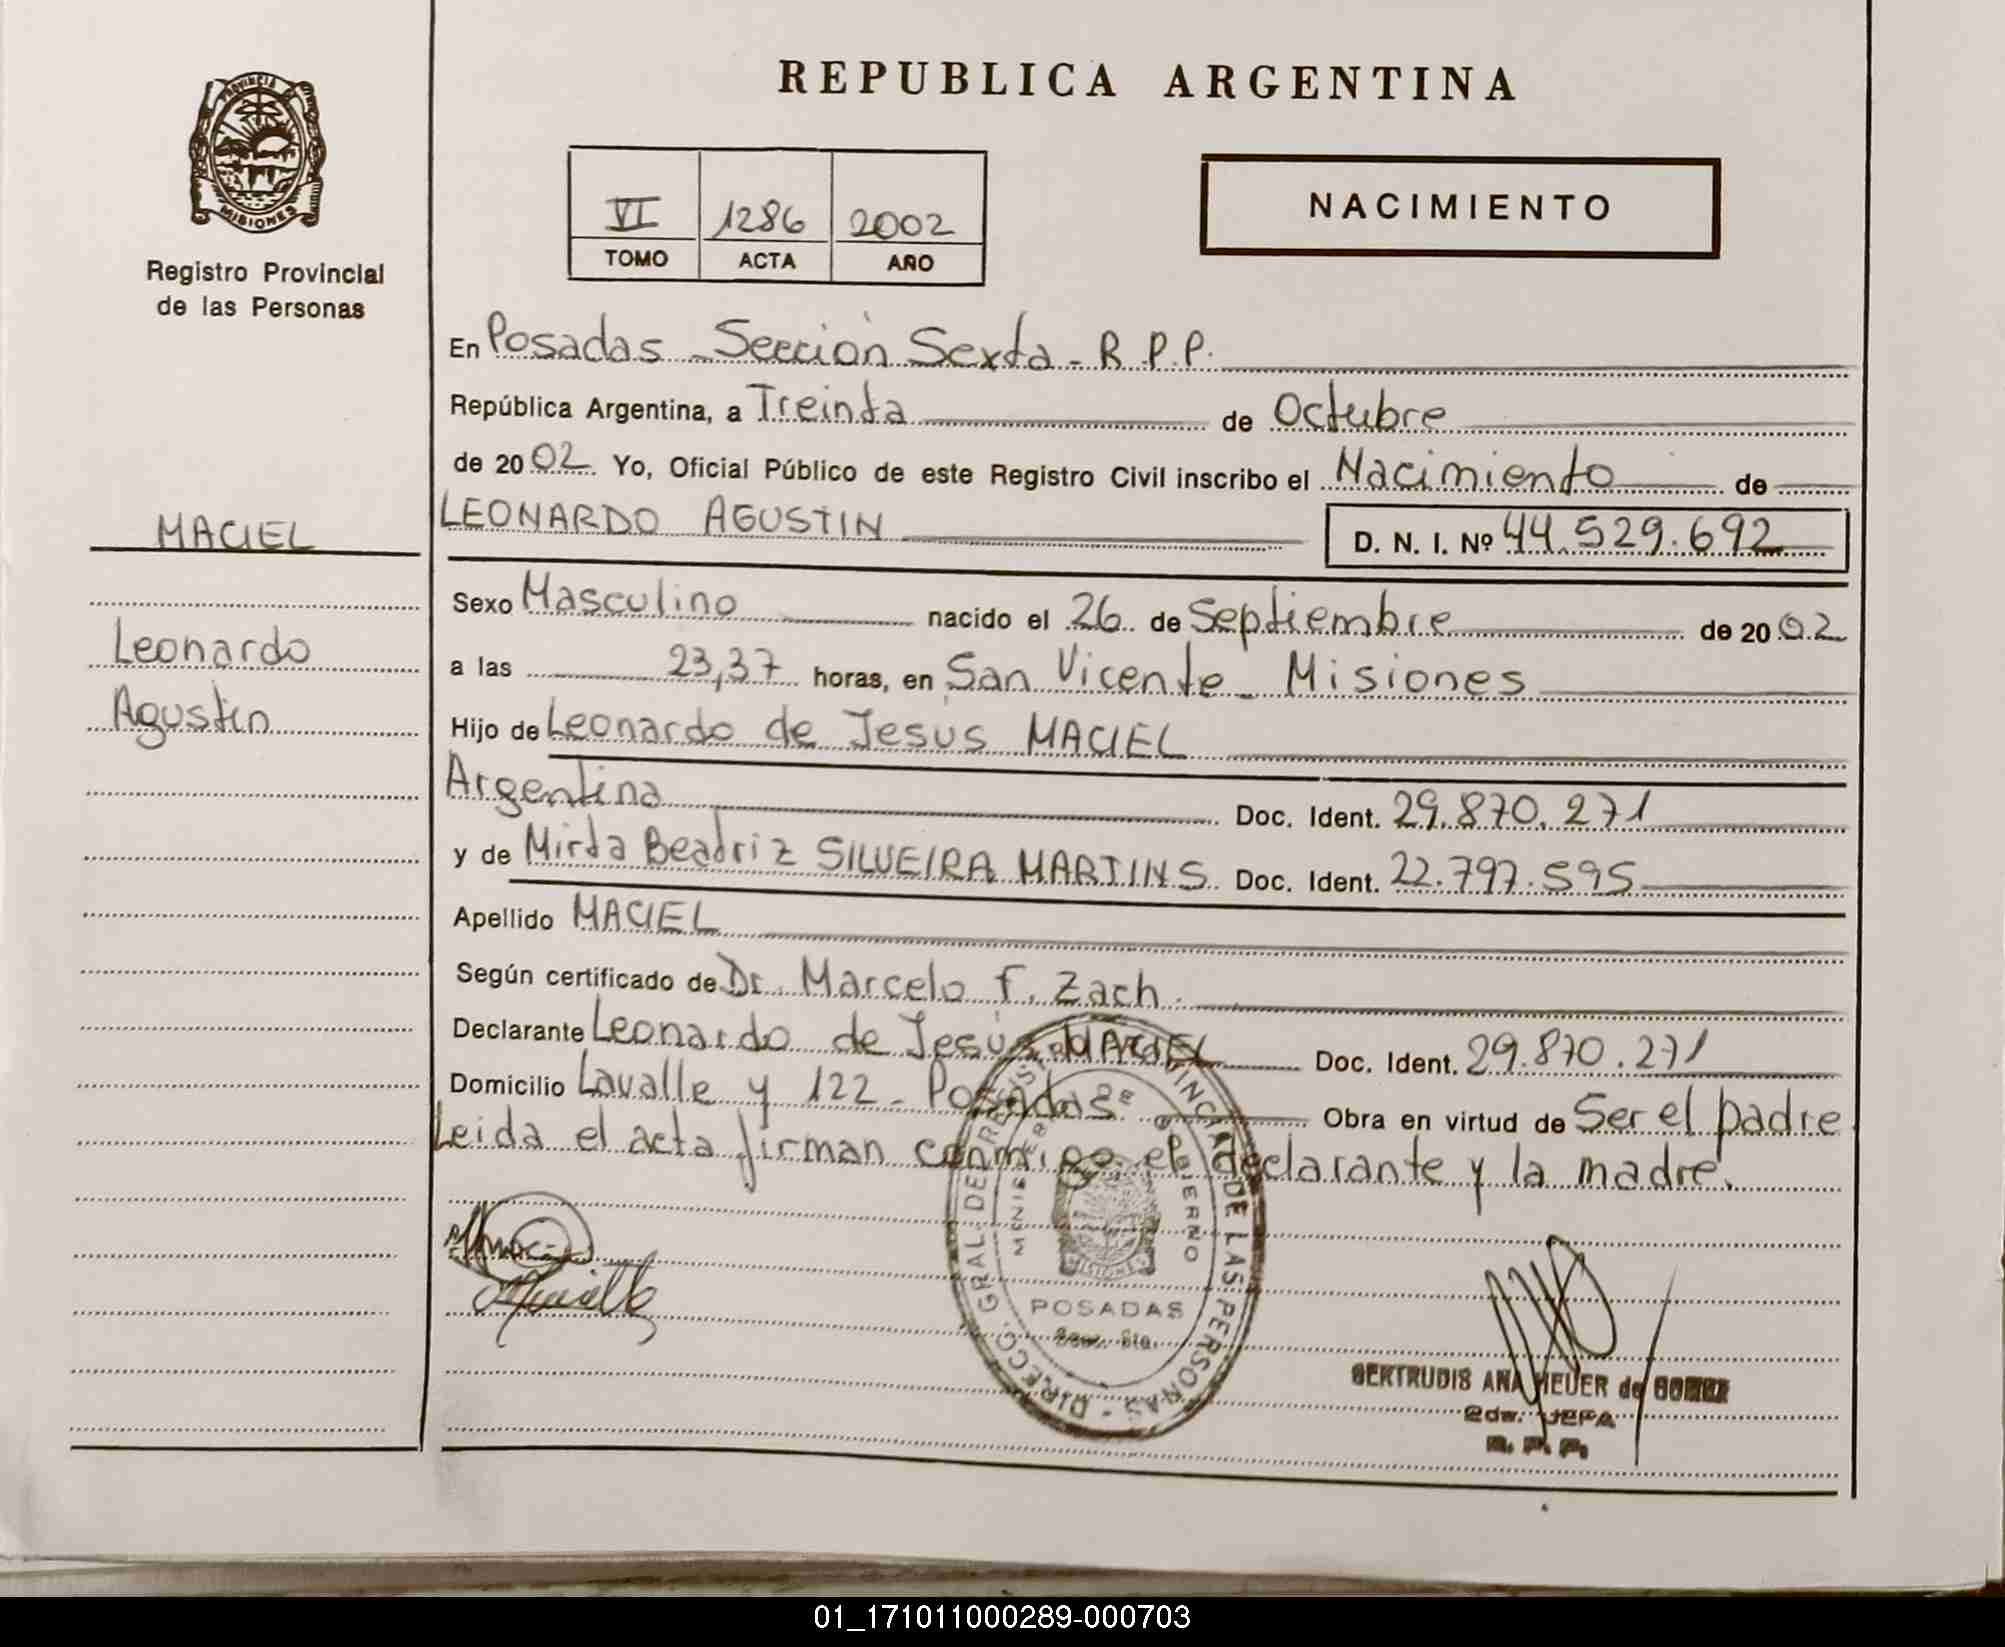 REPUBLICA ARGENTINA
PROVINCIA DE
MISIONES
Registro Provincial
de las Personas
VI 1286 2002
TOMO ACTA AÑO
NACIMIENTO
En Posadas - Sección Sexta - R.P.P.
República Argentina, a Treinta de Octubre
de 2002. Yo, Oficial Público de este Registro Civil inscribo el Nacimiento de
MACIEL
LEONARDO AGUSTIN D. N. I. Nº 44.529.692
Sexo Masculino nacido el 26 de Septiembre de 2002
Leonardo
a las 23,37 horas, en San Vicente - Misiones
Agustin
Hijo de Leonardo de Jesús MACIEL
Argentina Doc. Ident. 29.870.271
y de Mirta Beatriz SILVEIRA MARTINS Doc. Ident. 22.797.595
Apellido MACIEL
Según certificado de Dr. Marcelo F. Zach.
Declarante Leonardo de Jesús MACIEL Doc. Ident. 29.870.271
Domicilio Lavalle y 122 - Posadas Obra en virtud de Ser el padre.
Leida el acta firman conmigo el declarante y la madre.
DIRECC. GRAL. DE REGISTRO PROVINCIAL DE LAS PERSONAS
MINISTERIO DE GOBIERNO
MISIONES
POSADAS
Secc. 6ta.
GERTRUDIS ANA HEUER de GOMEZ
2da. JEFA
R. P. P.
01_171011000289-000703